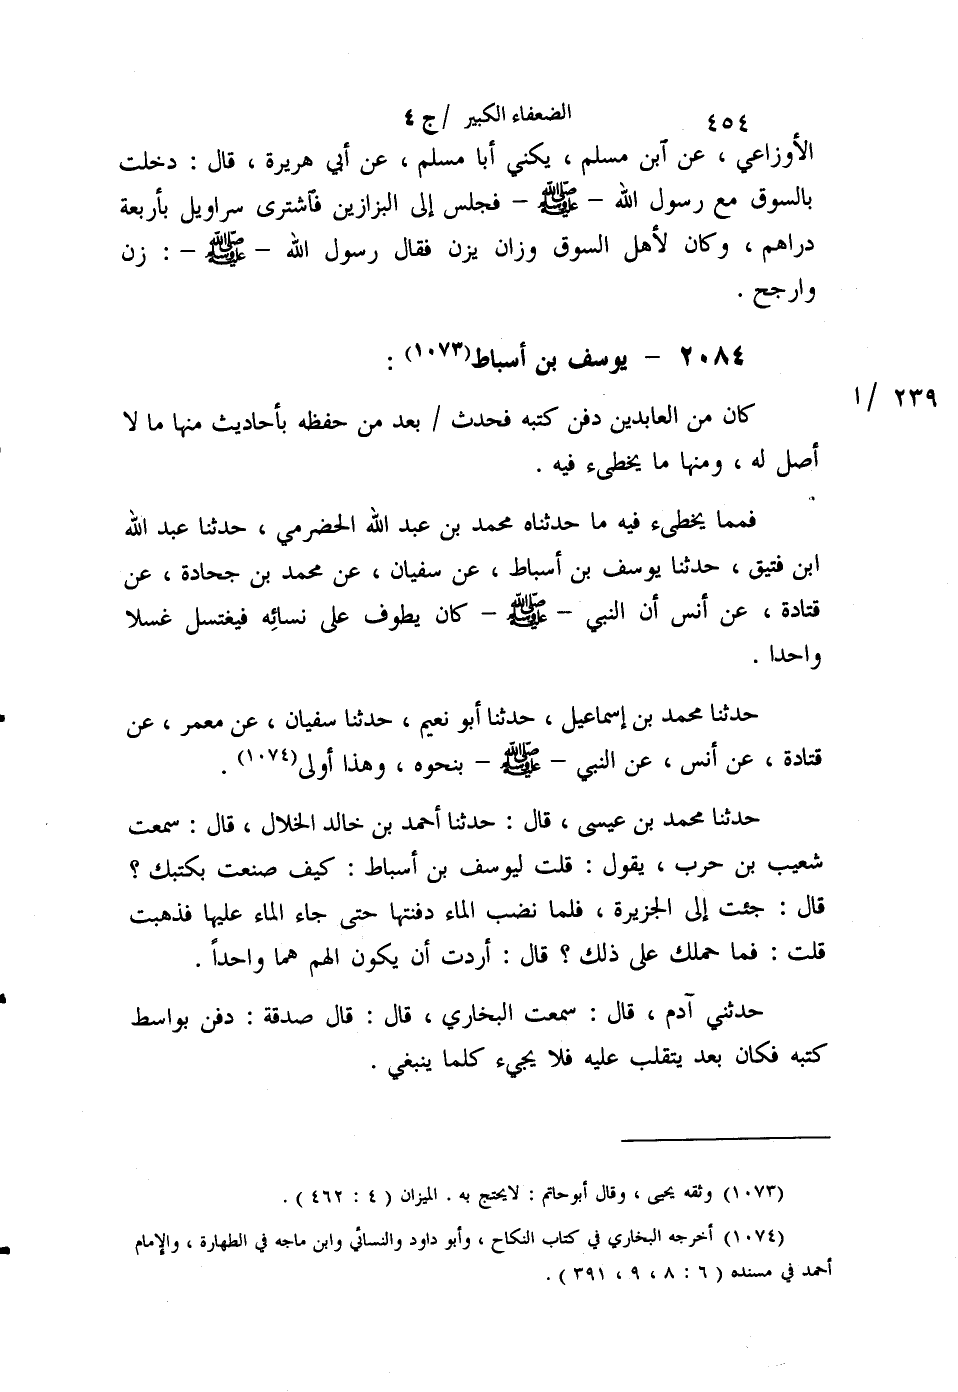 ٤٥٤ الضعفاء الكبير /ج ٤
الأوزاعي ، عن آبن مسلم ، يكني أبا مسلم ، عن أبي هريرة ، قال : دخلت
بالسوق مع رسول الله – ﷺ – فجلس إلى البزازين فآشترى سراويل بأربعة
دراهم ، وكان لأهل السوق وزان يزن فقال رسول الله – ﷺ – : زن
وارجح .
٢٠٨٤ – يوسف بن أسباط(١٠٧٣) :
كان من العابدين دفن كتبه فحدث / بعد من حفظه بأحاديث منها ما لا
٢٣٩ /١
أصل له ، ومنها ما يخطىء فيه .
فمما يخطىء فيه ما حدثناه محمد بن عبد الله الحضرمي ، حدثنا عبد الله
ابن فتيق ، حدثنا يوسف بن أسباط ، عن سفيان ، عن محمد بن جحادة ، عن
قتادة ، عن أنس أن النبي – ﷺ – كان يطوف على نسائِه فيغتسل غسلا
واحدا .
حدثنا محمد بن إسماعيل ، حدثنا أبو نعيم ، حدثنا سفيان ، عن معمر ، عن
قتادة ، عن أنس ، عن النبي – ﷺ – بنحوه ، وهذا أولى(١٠٧٤) .
حدثنا محمد بن عيسى ، قال : حدثنا أحمد بن خالد الخلال ، قال : سمعت
شعيب بن حرب ، يقول : قلت ليوسف بن أسباط : كيف صنعت بكتبك ؟
قال : جئت إلى الجزيرة ، فلما نضب الماء دفنتها حتى جاء الماء عليها فذهبت
قلت : فما حملك على ذلك ؟ قال : أردت أن يكون الهم هما واحداً .
حدثني آدم ، قال : سمعت البخاري ، قال : قال صدقة : دفن بواسط
كتبه فكان بعد يتقلب عليه فلا يجيء كلما ينبغي .
(١٠٧٣) وثقه يحيى ، وقال أبوحاتم : لايحتج به . الميزان ( ٤ : ٤٦٢ ) .
(١٠٧٤) أخرجه البخاري في كتاب النكاح ، وأبو داود والنسائي وابن ماجه في الطهارة ، والإمام
أحمد في مسنده ( ٦ : ٨ ، ٩ ، ٣٩١ ) .